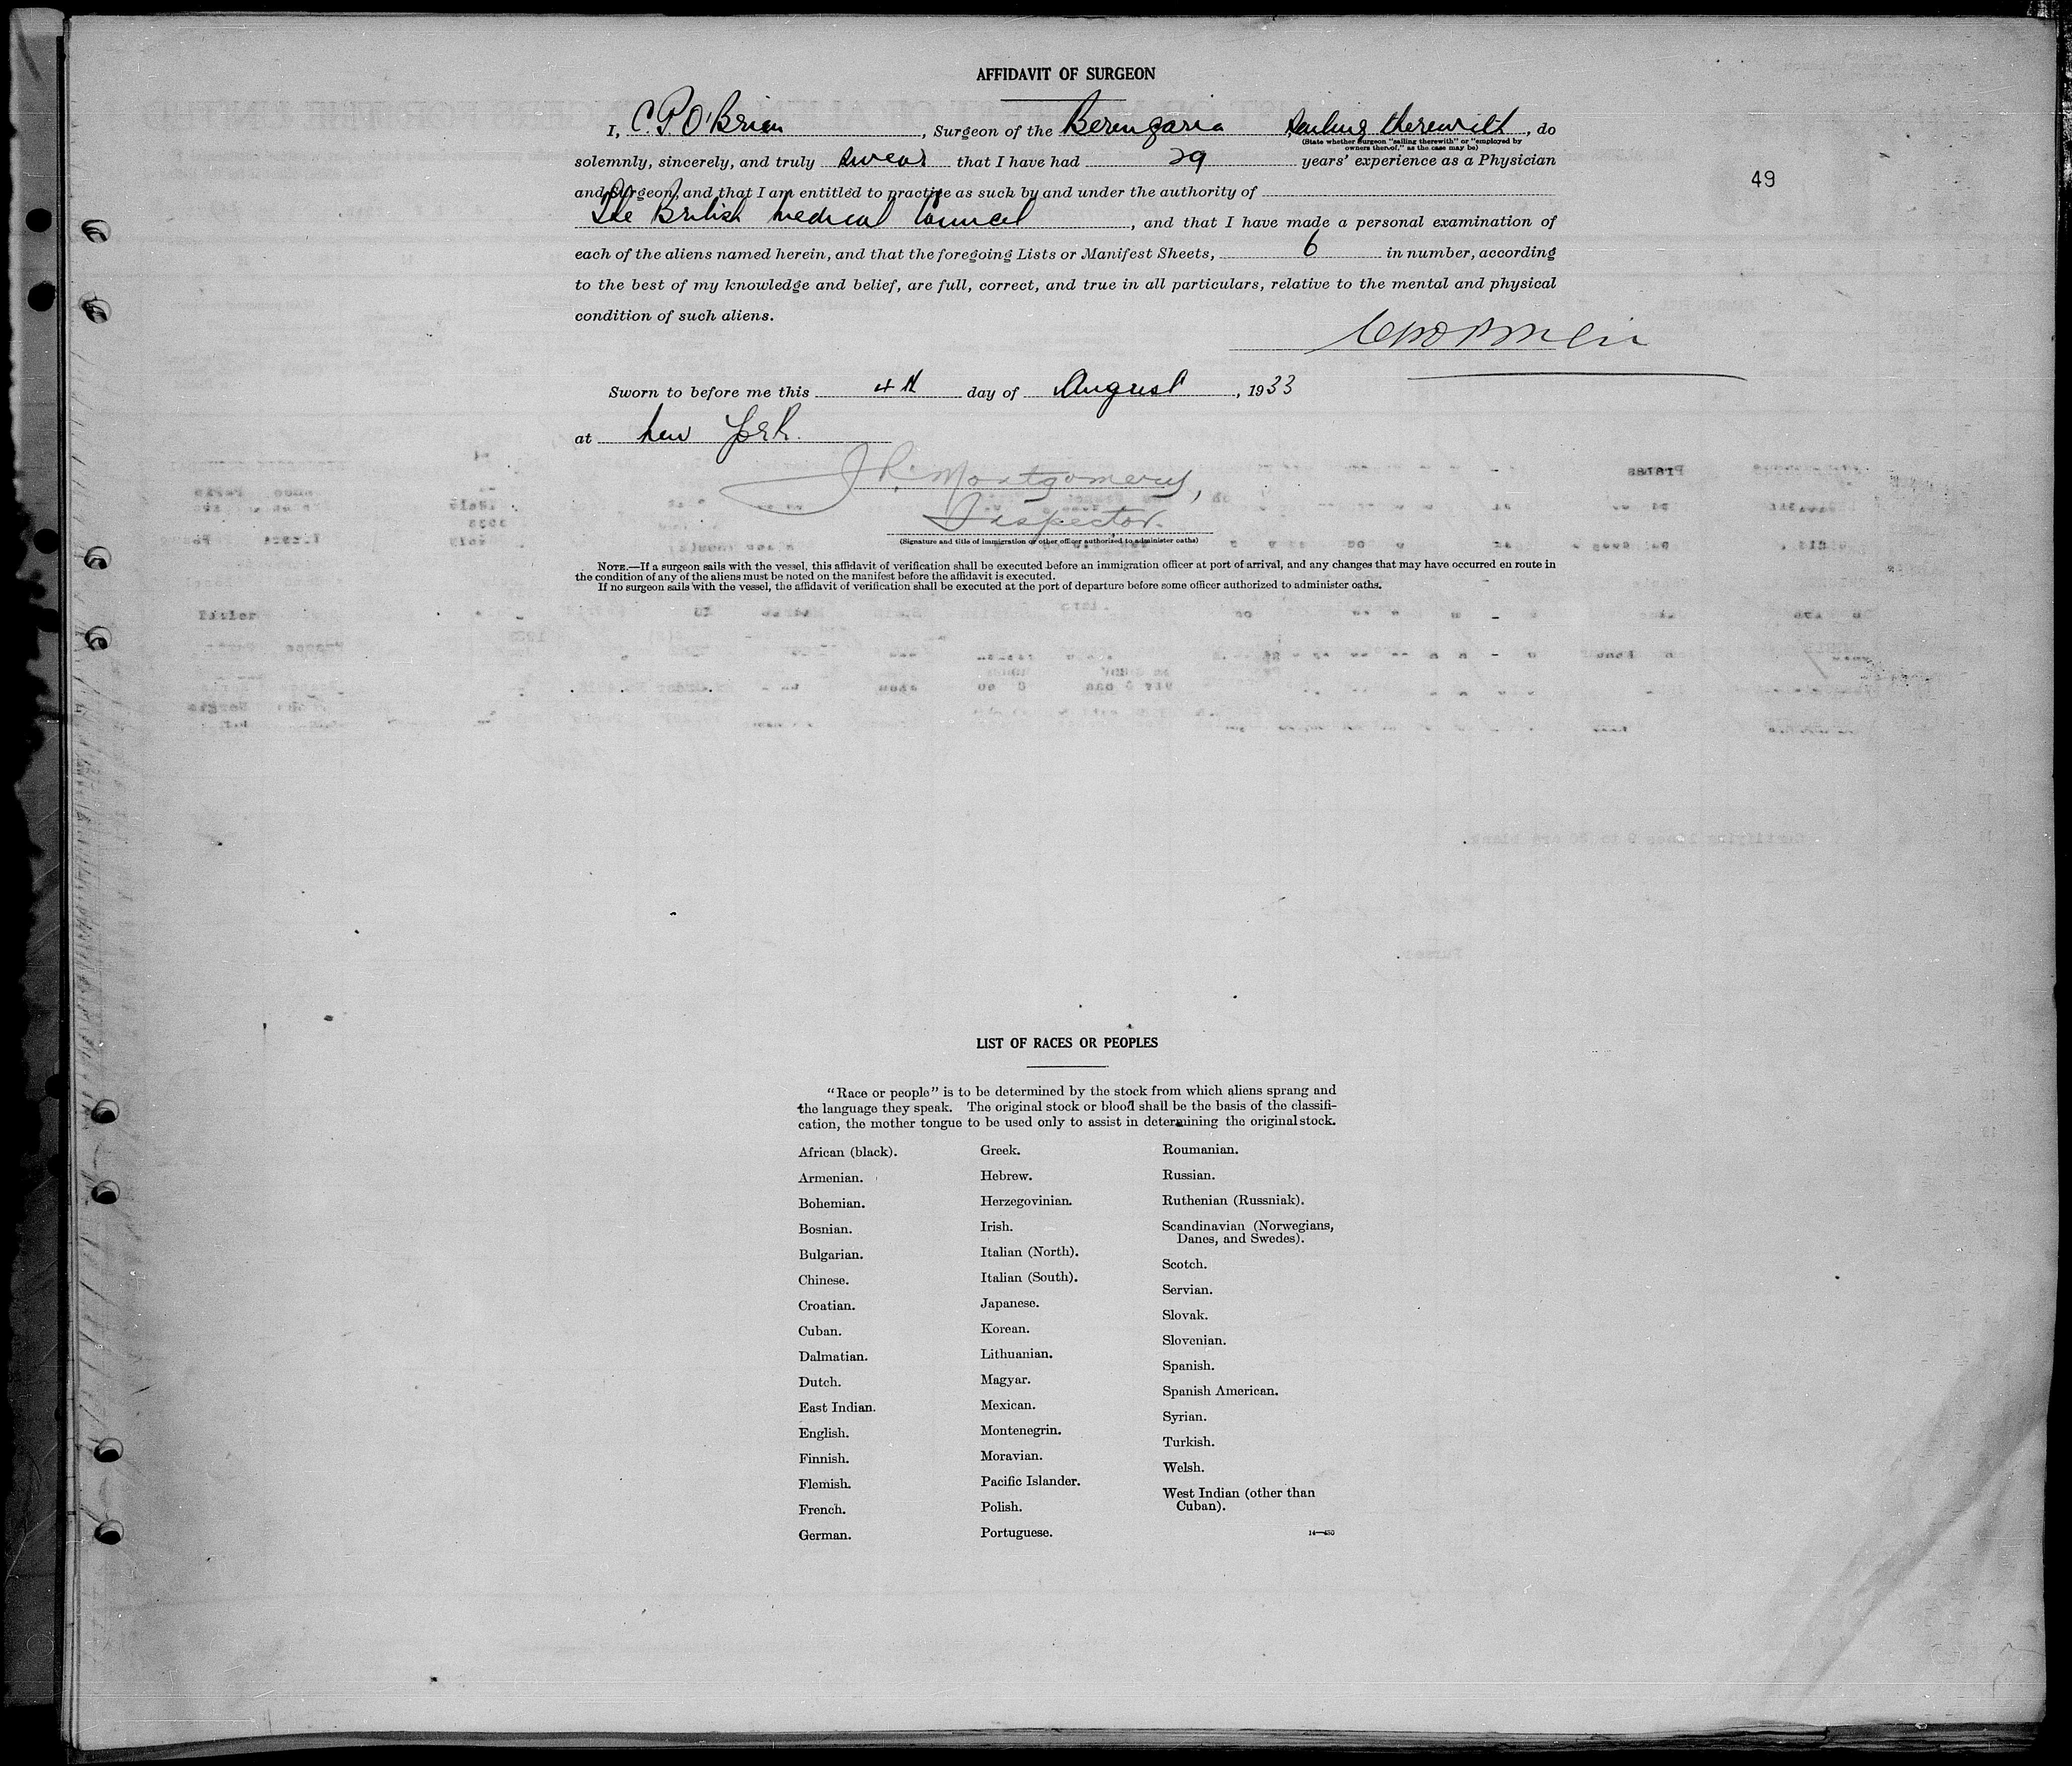 AFFIDAVIT OF SURGEON
I, C. P. O'Brien, Surgeon of the Berengaria Sailing therewith, do
(State whether surgeon "sailing therewith" or "employed by
owners thereof," as the case may be)
solemnly, sincerely, and truly swear that I have had 29 years' experience as a Physician
and Surgeon, and that I am entitled to practice as such by and under the authority of
The British Medical Council, and that I have made a personal examination of
each of the aliens named herein, and that the foregoing Lists or Manifest Sheets, 6 in number, according
to the best of my knowledge and belief, are full, correct, and true in all particulars, relative to the mental and physical
condition of such aliens.
Sworn to before me this 4th day of August, 1933
at New York.
J R. Montgomery,
Inspector.
(Signature and title of immigration or other officer authorized to administer oaths)
NOTE.—If a surgeon sails with the vessel, this affidavit of verification shall be executed before an immigration officer at port of arrival, and any changes that may have occurred en route in
the condition of any of the aliens must be noted on the manifest before the affidavit is executed.
If no surgeon sails with the vessel, the affidavit of verification shall be executed at the port of departure before some officer authorized to administer oaths.
49
LIST OF RACES OR PEOPLES
"Race or people" is to be determined by the stock from which aliens sprang and
the language they speak. The original stock or blood shall be the basis of the classifi-
cation, the mother tongue to be used only to assist in determining the original stock.
African (black).
Armenian.
Bohemian.
Bosnian.
Bulgarian.
Chinese.
Croatian.
Cuban.
Dalmatian.
Dutch.
East Indian.
English.
Finnish.
Flemish.
French.
German.
Greek.
Hebrew.
Herzegovinian.
Irish.
Italian (North).
Italian (South).
Japanese.
Korean.
Lithuanian.
Magyar.
Mexican.
Montenegrin.
Moravian.
Pacific Islander.
Polish.
Portuguese.
Roumanian.
Russian.
Ruthenian (Russniak).
Scandinavian (Norwegians,
Danes, and Swedes).
Scotch.
Servian.
Slovak.
Slovenian.
Spanish.
Spanish American.
Syrian.
Turkish.
Welsh.
West Indian (other than
Cuban).
14—430